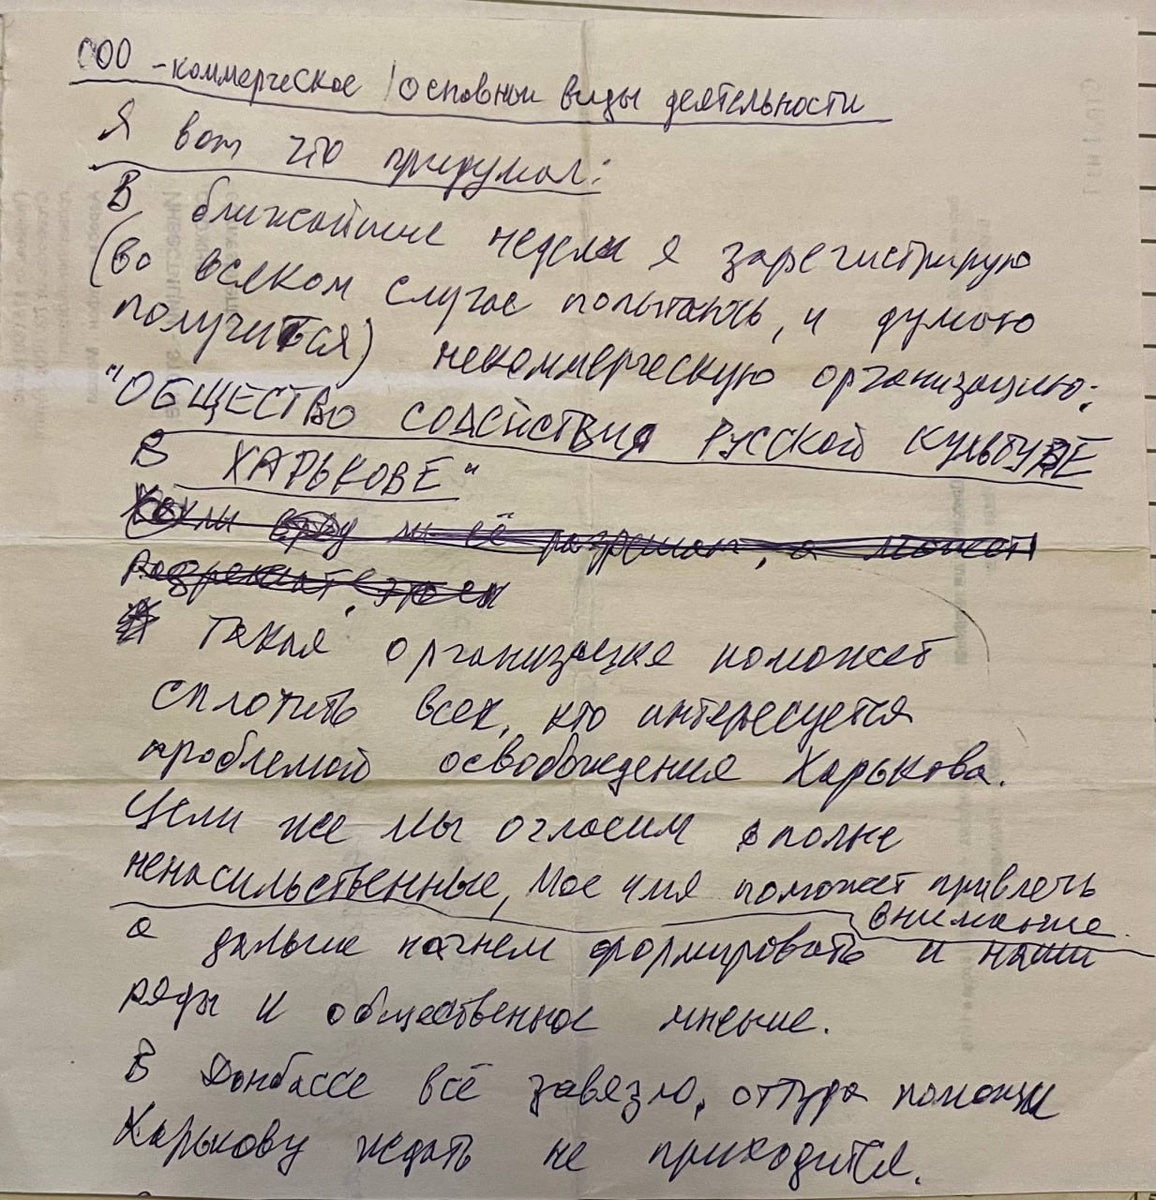 ООО - коммерческое / основные виды деятельности
Я вот что придумал:
В ближайшие недели я зарегистрирую
(во всяком случае попытаюсь, и думаю
получится) некоммерческую организацию:
"ОБЩЕСТВО СОДЕЙСТВИЯ РУССКОЙ КУЛЬТУРЕ
В ХАРЬКОВЕ"
её разрешат, а может
разрешат,
Такая организация поможет
сплотить всех, кто интересуется
проблемой освобождения Харькова.
Цели же мы огласим вполне
ненасильственные, Мое имя поможет привлечь
внимание.
а дальше начнем формировать и наши
ряды и общественное мнение.
В Донбассе всё завязло, оттуда помощи
Харькову ждать не приходится.